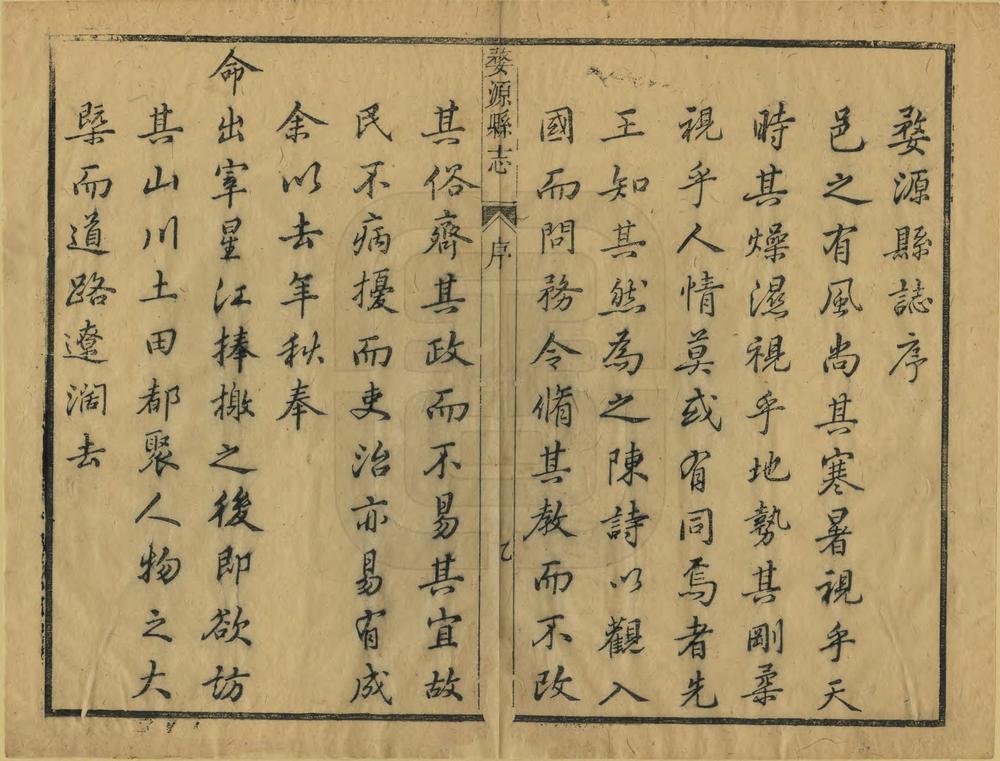 婺源縣誌序
邑之有風尚其寒暑視乎天
時其燥濕視乎地勢其剛柔
視乎人情莫或有同焉者先
王知其然為之陳詩以觀入
國而問務令脩其教而不改
婺源縣志 序 乙
其俗齊其政而不易其宜故
民不病擾而吏治亦易有成
余以去年秋奉
命出宰星江捧檄之後即欲訪
其山川土田都聚人物之大
槩而道路遼濶去